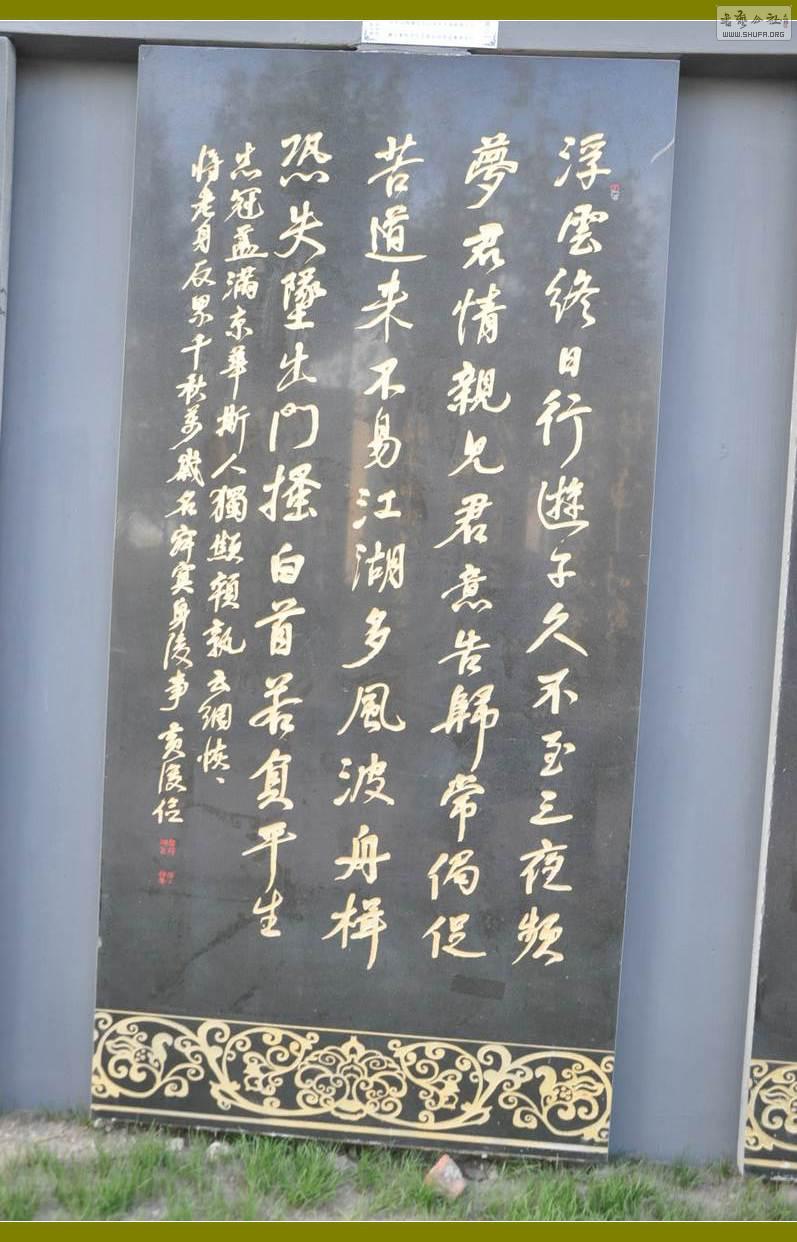 書藝公社
WWW.SHUFA.ORG
浮雲終日行遊子久不至三夜頻
夢君情親見君意告歸常侷促
苦道来不易江湖多風波舟楫
恐失墜出門搔白首若負平生
志冠盖滿京華斯人獨顦顇孰云網恢〻
將老身反累千秋萬歲名寂寞身後事 黄